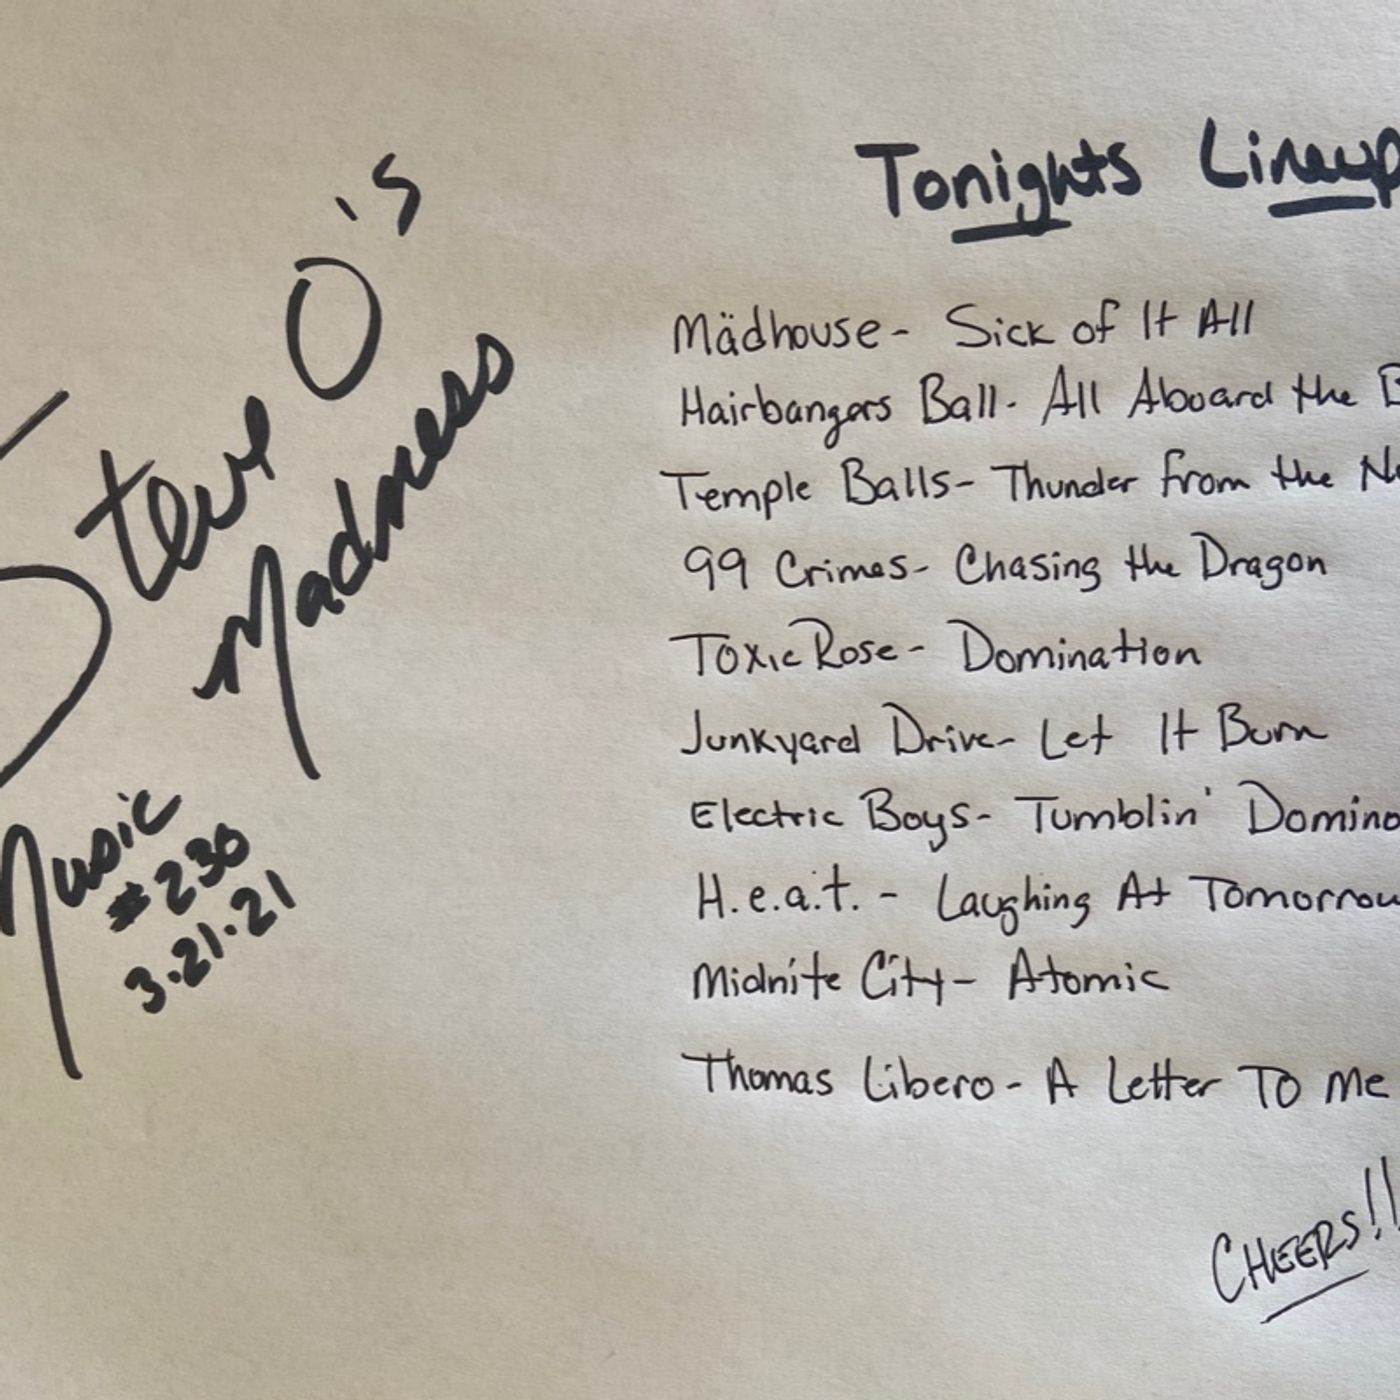 Steve O's
Madness
Music
#230
3.21.21
Tonights Lineup
Mädhouse- Sick of It All
Hairbangers Ball- All Aboard the
Temple Balls- Thunder from the
99 Crimes- Chasing the Dragon
ToxicRose- Domination
Junkyard Drive- Let It Burn
Electric Boys- Tumblin' Domino
H.e.a.t. - Laughing At Tomorrow
Midnite City- Atomic
Thomas Libero- A Letter To Me
CHEERS!!